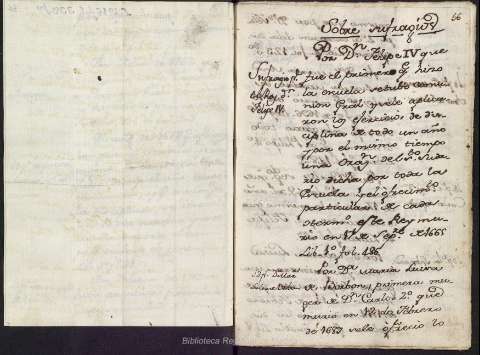 66
Sobre sufragios
Por Dn. Felipe IV que
fue el primero q hizo
la escuela se tubo comu-
nion Gral y se le aplica-
ron los exercicios de dis-
ciplina de todo un año
y por el mismo tiempo
una Orazn. del Sto. Suda-
rio dicha por toda la
Escuela y el ofrecimto.
particular de cada
este Rey mu-
rio en 17 de Sepre. de 1665
Lib. 1o. fol. 186.
Por Da. Maria Luisa
de Borbon, primera mu-
ger de Dn. Carlos 2o. que
murio en 12 de Febrero
de 1689 se le ofrecio lo
Sufragio pr.
el Rey Dn.
Felipe IV.
Biblioteca Re